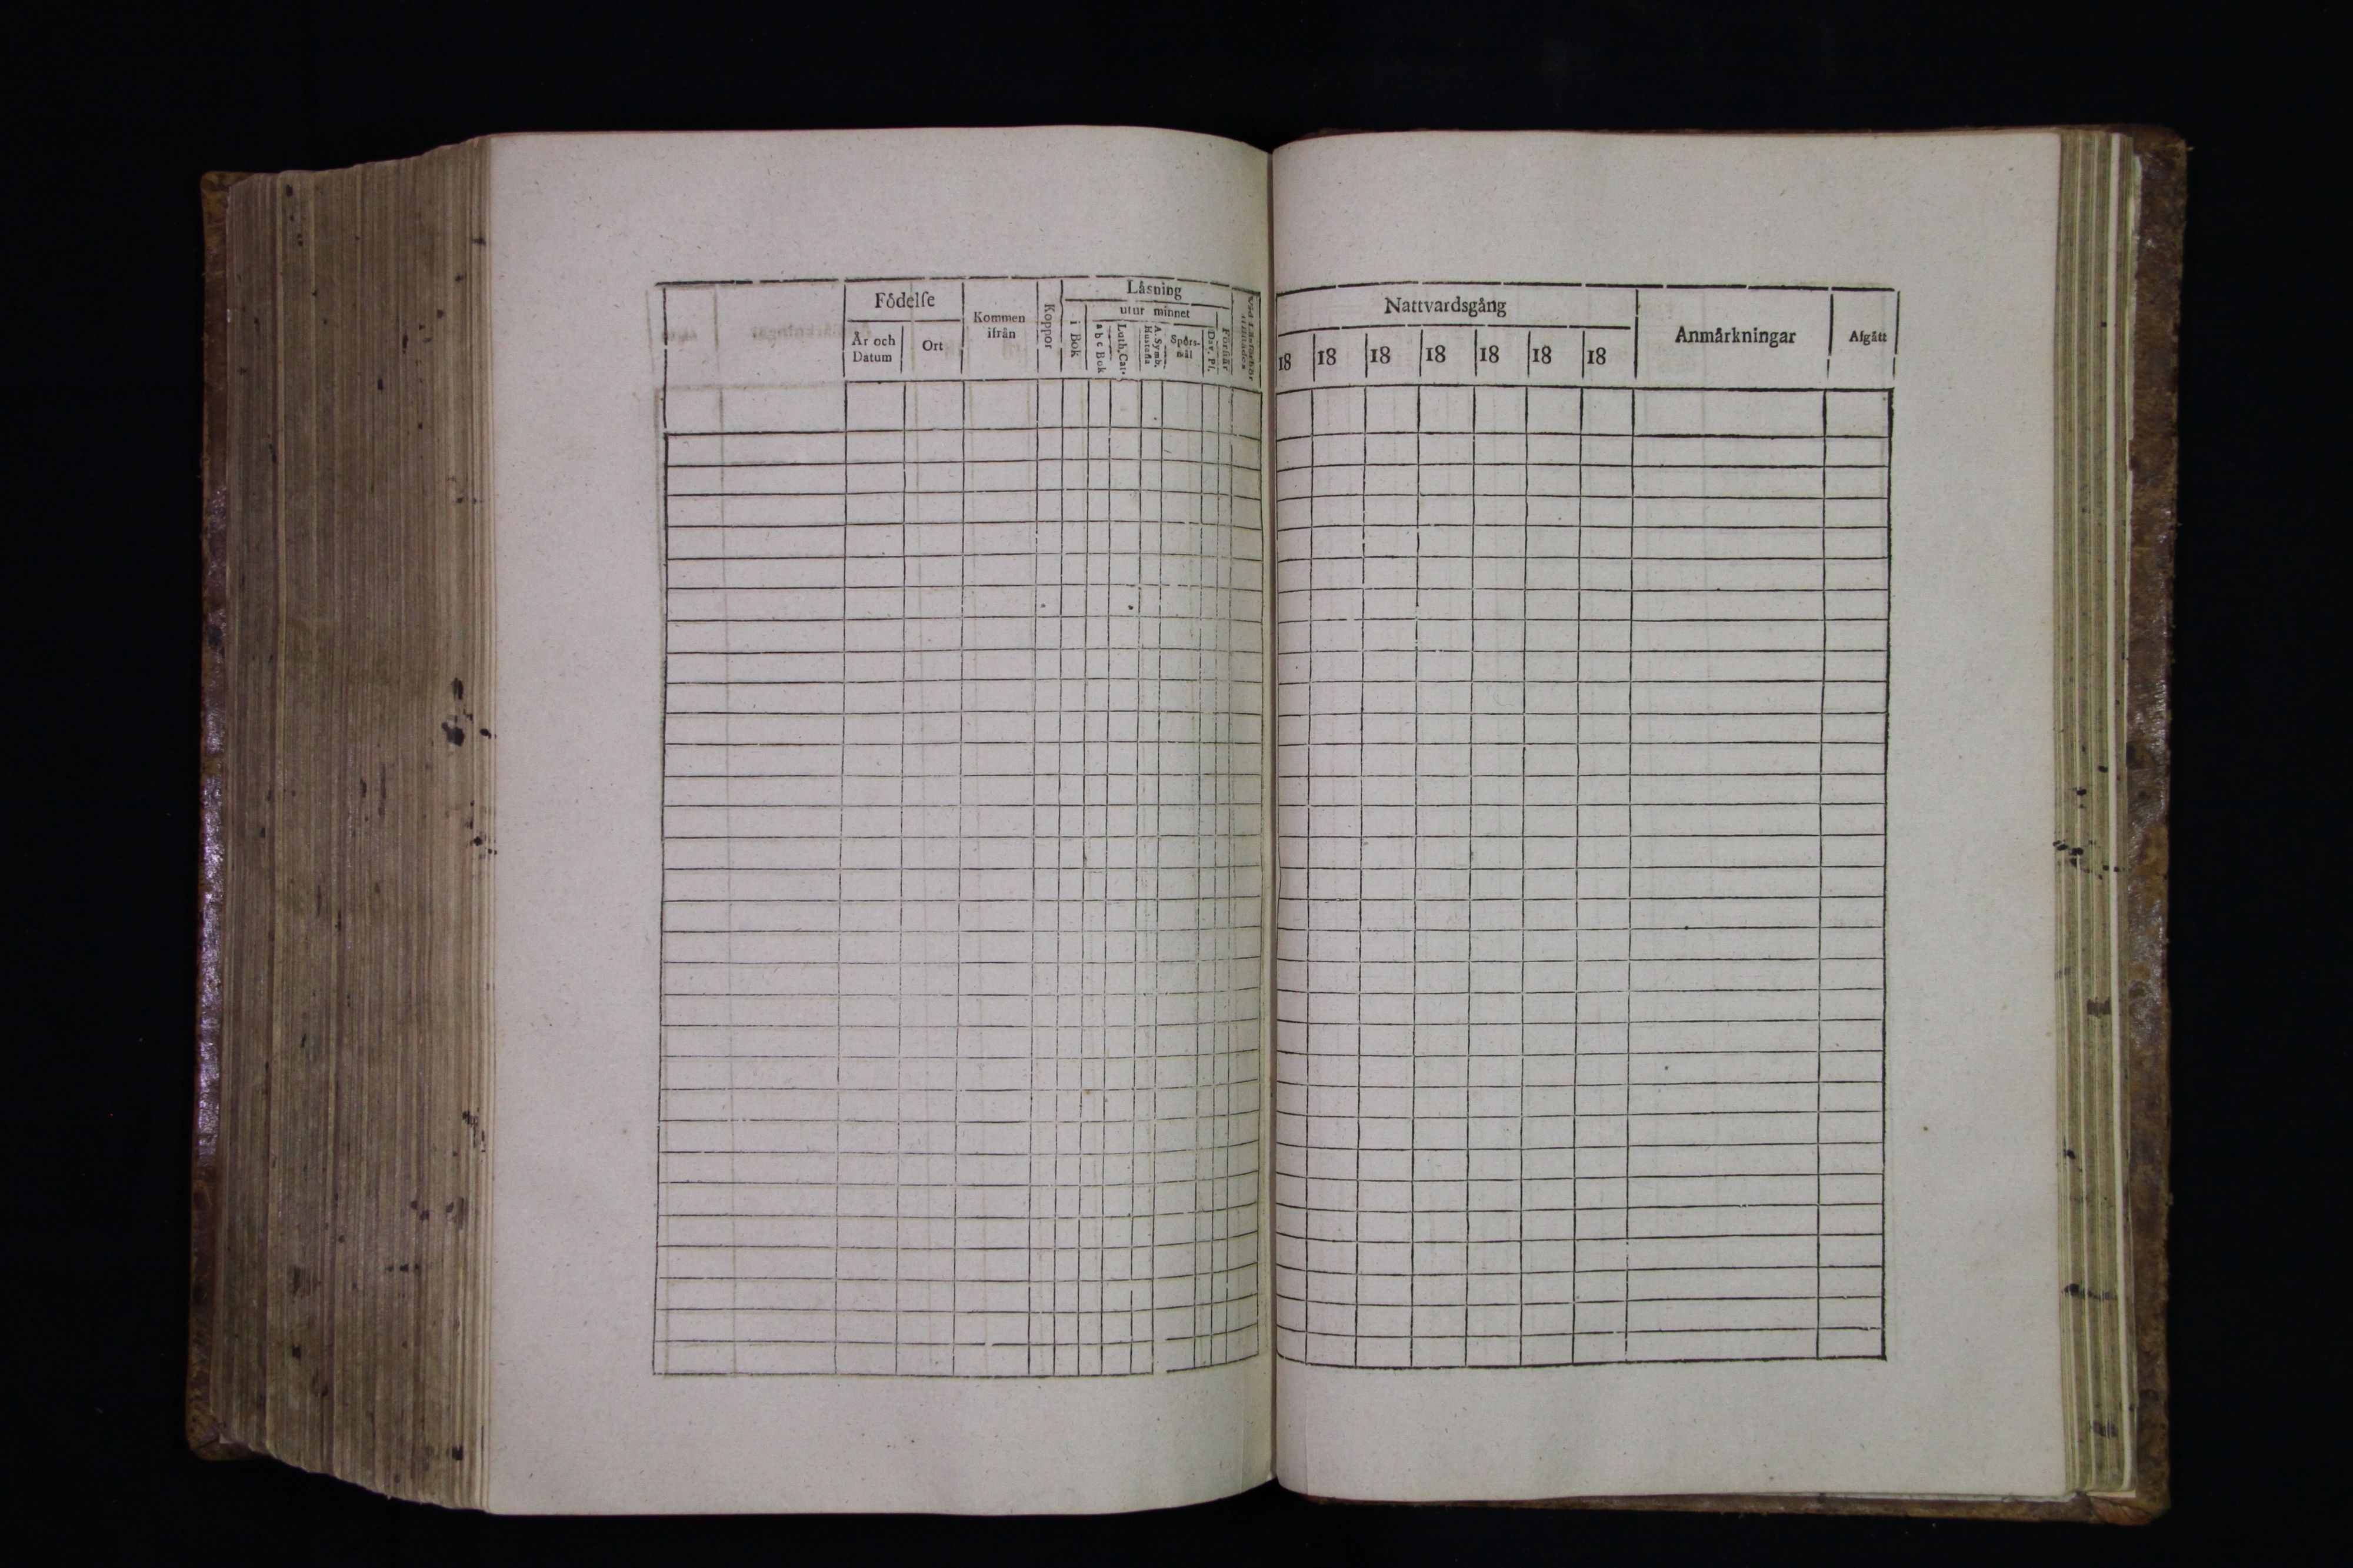 Födelse
År och Datum
Ort
Kommen ifrån
Koppor
Läsning
i Bok
utur minnet
a b c Bok
Luth. Cat.
A. Symb. Hustafla
Spörsmål
Dav. Ps.
Förstår
Nattvardsgång
18 18 18 18 18 18 18
Anmärkningar
Afgått